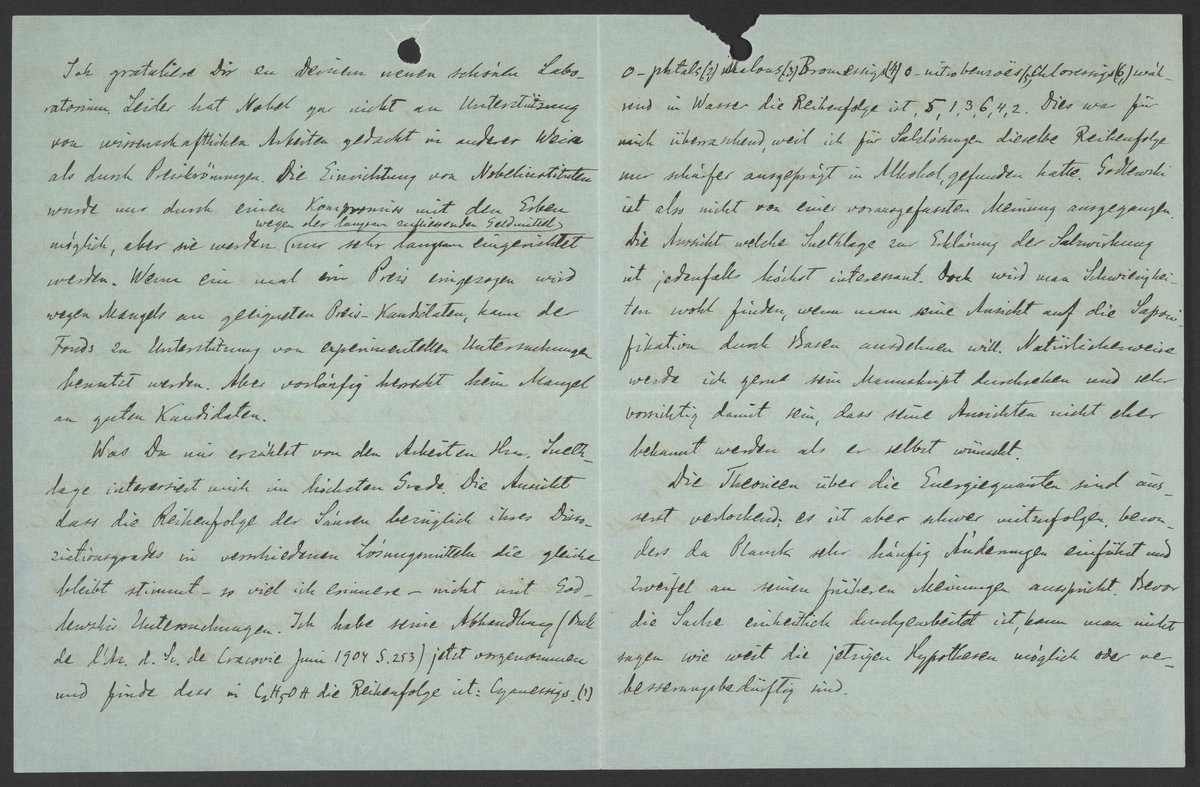 Ich gratuliere Dir zu Deinem neuen schönen Labo-
ratorium. Leider hat Nobel gar nicht an Unterstützung
von wissenschaftlichen Arbeiten gedacht in anderer Weise
als durch Preiskrönungen. Die Einrichtung von Nobelinstituten
wurde nur durch einen Kompromiss mit den Erben
wegen der langsam zufliessenden Geldmittel
möglich, aber sie werden (nur sehr langsam eingerichtet
werden. Wenn ein mal ein Preis eingezogen wird
wegen Mangels an geeigneten Preis-Kandidaten, kann der
Fonds zu Unterstützung von experimentellen Untersuchungen
benutzt werden. Aber vorläufig herrscht kein Mangel
an guten Kandidaten.
Was Du mir erzählst von den Arbeiten Hrn. Sneth-
lage interessiert mich im höchsten Grade. Die Ansicht
dass die Reihenfolge der Säuren bezüglich ihres Disso-
ziationsgrades in verschiedenen Lösungsmitteln die gleiche
bleibt stimmt - so viel ich erinnere - nicht mit God-
lewskis Untersuchungen. Ich habe seine Abhandlung (Bull
de l'Ac. d. Sc. de Cracovie Juni 1904 S. 253) jetzt vorgenommen
und finde dass in C2H5OH die Reihenfolge ist: Cyanessigs. (1)
o-phtals (2) Malons (3) Bromessigs (4) o-nitrobenzoës (5) Chloressigs (6,) wäh-
rend in Wasser die Reihenfolge ist, 5, 1, 3, 6, 4, 2. Dies war für
mich überraschend, weil ich für Salzlösungen dieselbe Reihenfolge
nur schärfer ausgeprägt in Alkohol gefunden hatte. Godlewski
ist also nicht von einer vorausgefassten Meinung ausgegangen.
Die Ansicht welche Snethlage zur Erklärung der Salzwirkung
ist jedenfalls höchst interessant. Doch wird man Schwierigkei-
ten wohl finden, wenn man seine Ansicht auf die Saponi-
fikation durch Basen ausdehnen will. Natürlicherweise
werde ich gerne sein Manuskript durchsehen und sehr
vorsichtig damit sein, dass seine Ansichten nicht eher
bekannt werden als er selbst wünscht.
Die Theorieen über die Energiequanten sind äus-
serst verlockend; es ist aber schwer mitzufolgen, beson-
ders da Planck sehr häufig Änderungen einführt und
Zweifel an seinen früheren Meinungen ausspricht. Bevor
die Sache einheitlich durchgearbeitet ist, kann man nicht
sagen wie weit die jetzigen Hypothesen möglich oder ver-
besserungsbedürftig sind.